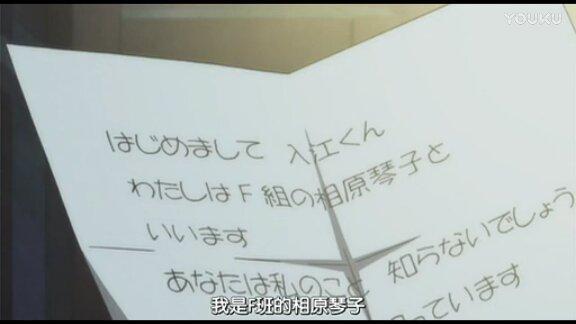 YOUKU
はじめまして 入江くん
わたしはF組の相原琴子と
いいます
あなたは私のこと 知らないでしょう
っています
我是F班的相原琴子